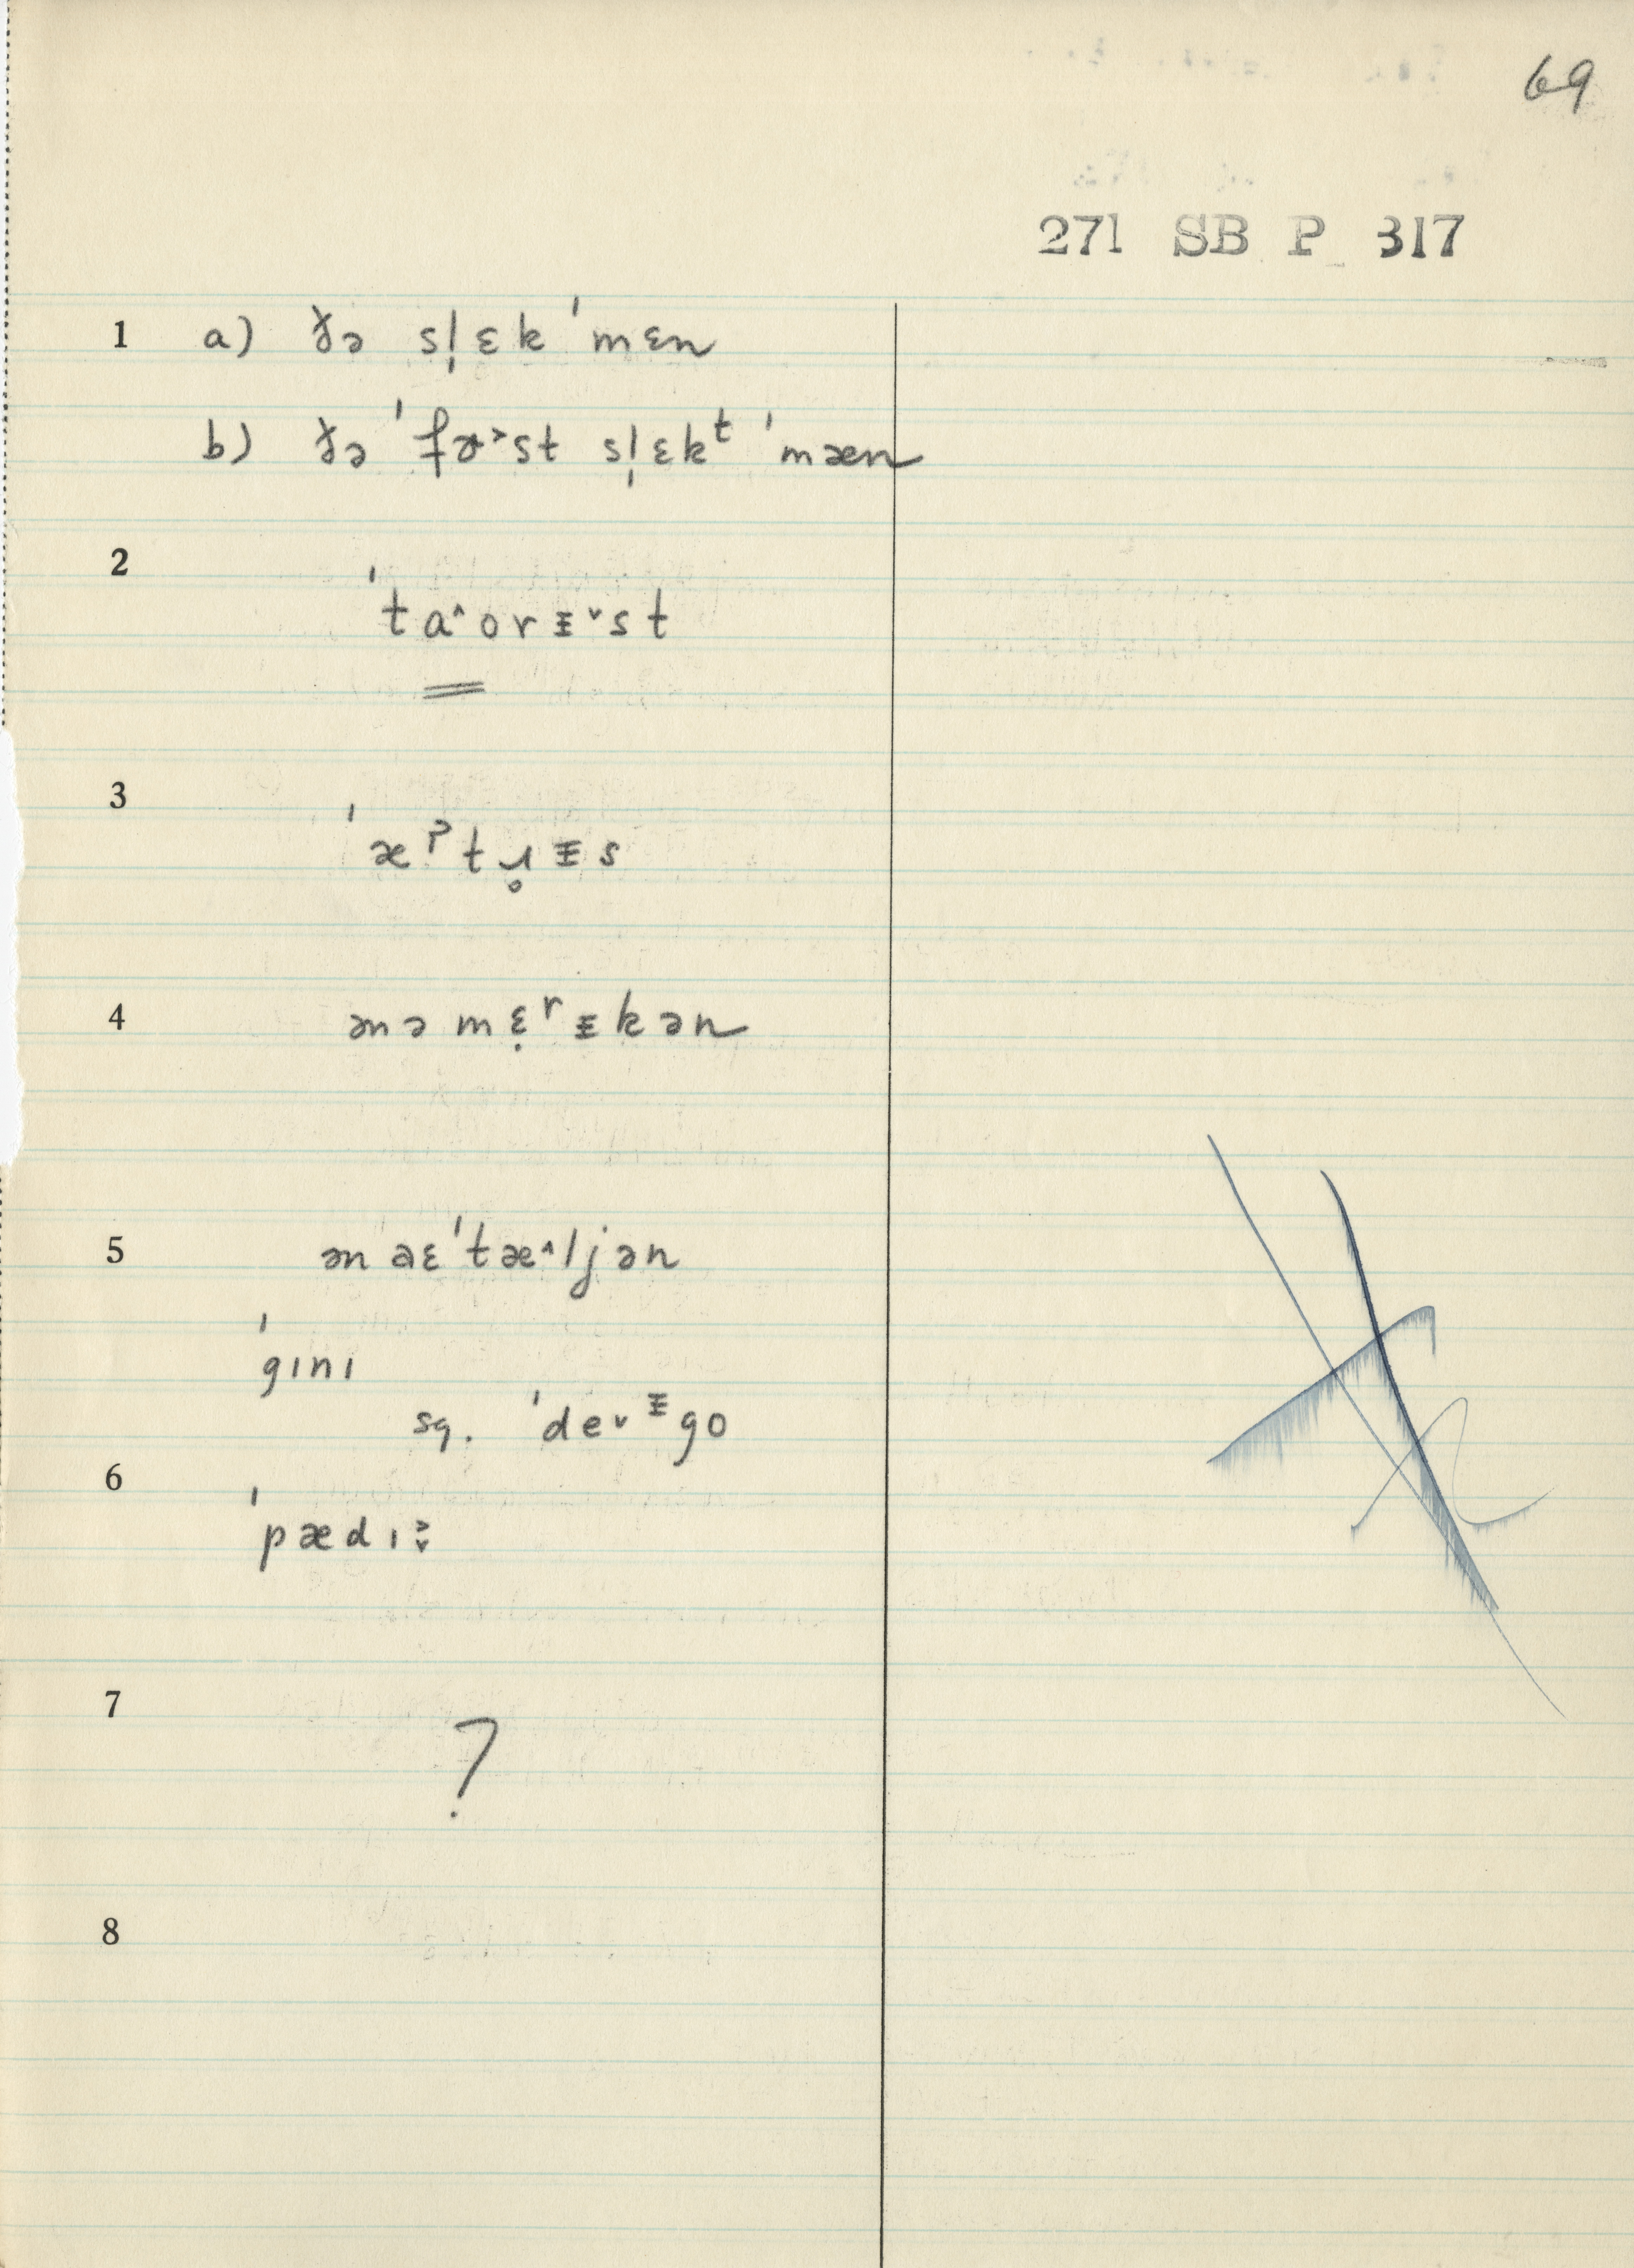 69
271 SB P 317
1 a) ðə sl̩ɛk ˈmɛn
b) ðə ˈfɚ˃st sl̩ɛkᵗ ˈmæn
2
ˈta˄orɪ˅st
3
ˈæˀtɹ̥ɪs
4 ənəmɛ̣ʳɪkən
5 ən aɛˈtæ˄ljən
ˈgɪnɪ
sg. ˈde˅ᵻgo
6
ˈpædɪ˃˅
7
?
8